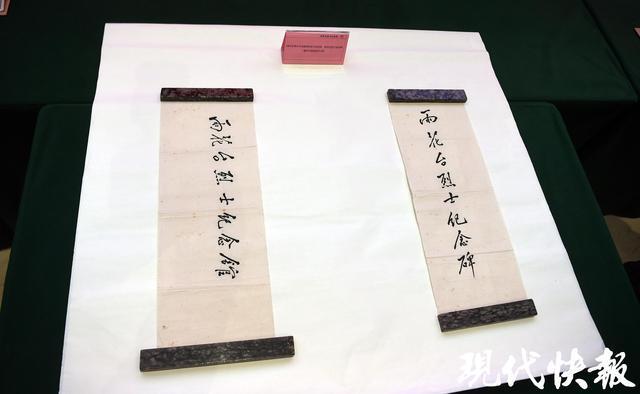 雨花台烈士纪念馆
雨花台烈士纪念碑
现代快報